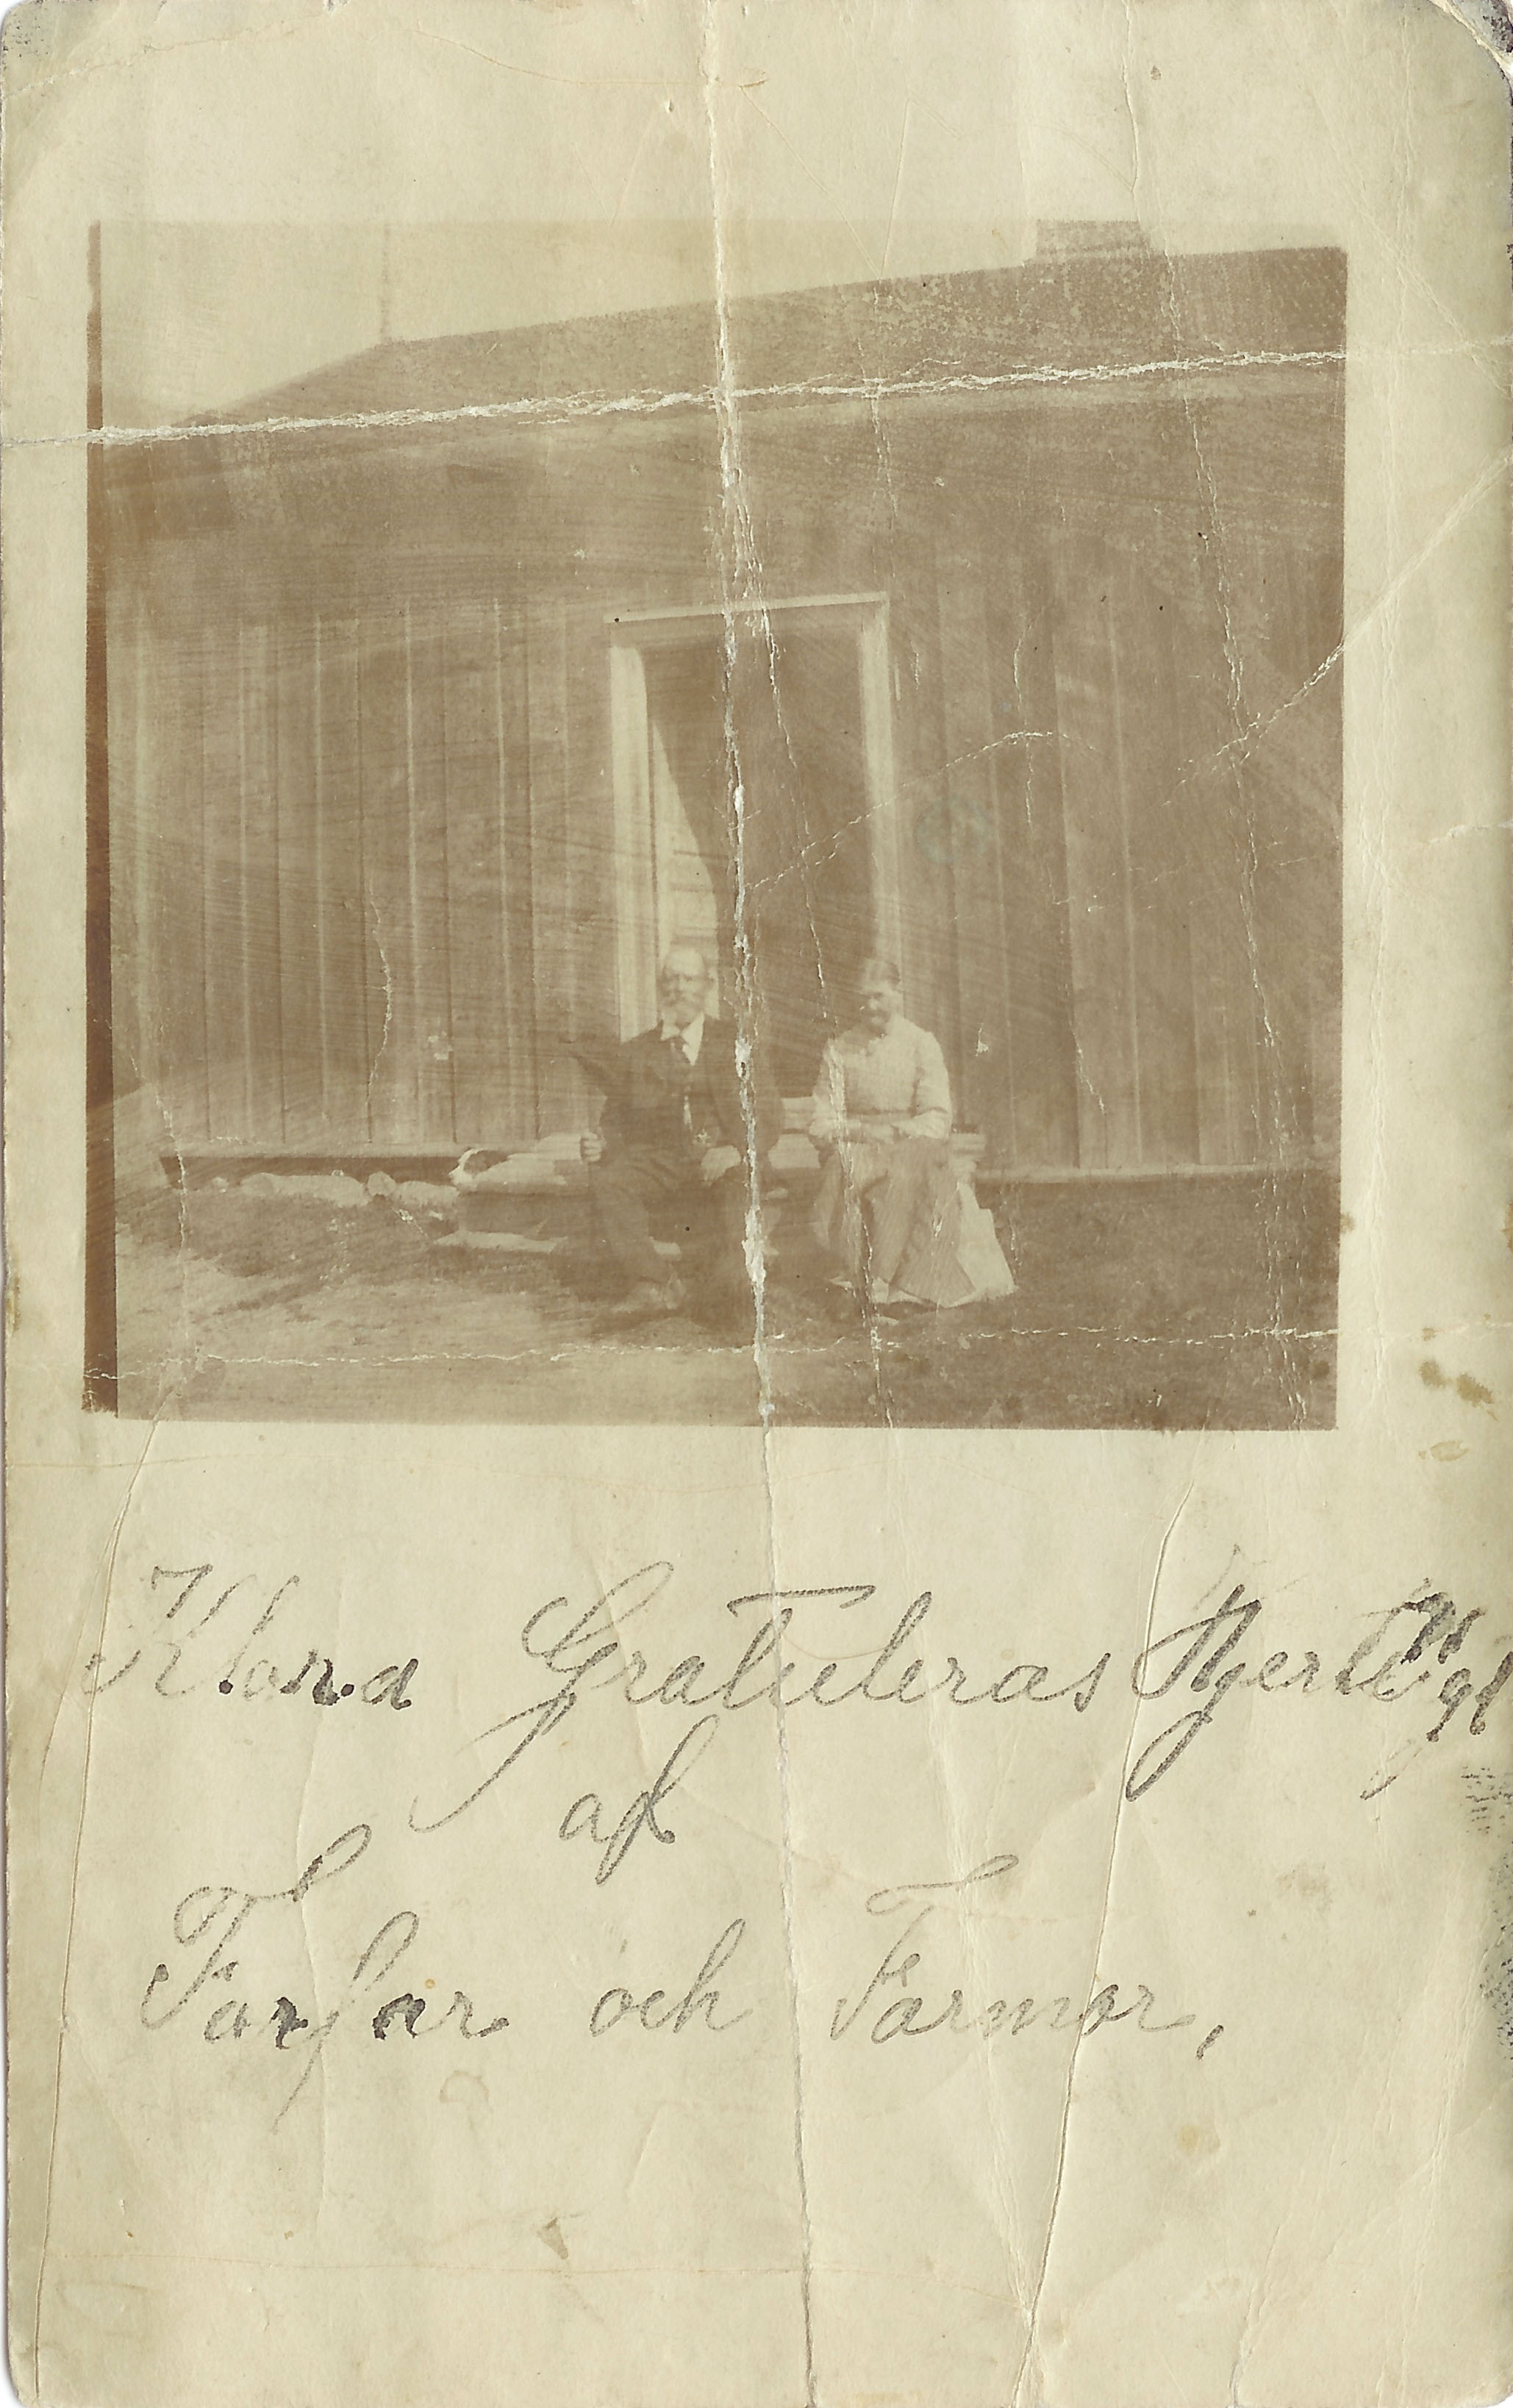 Klara Gratuleras Hjertligt
af
Farfar och Farmor,